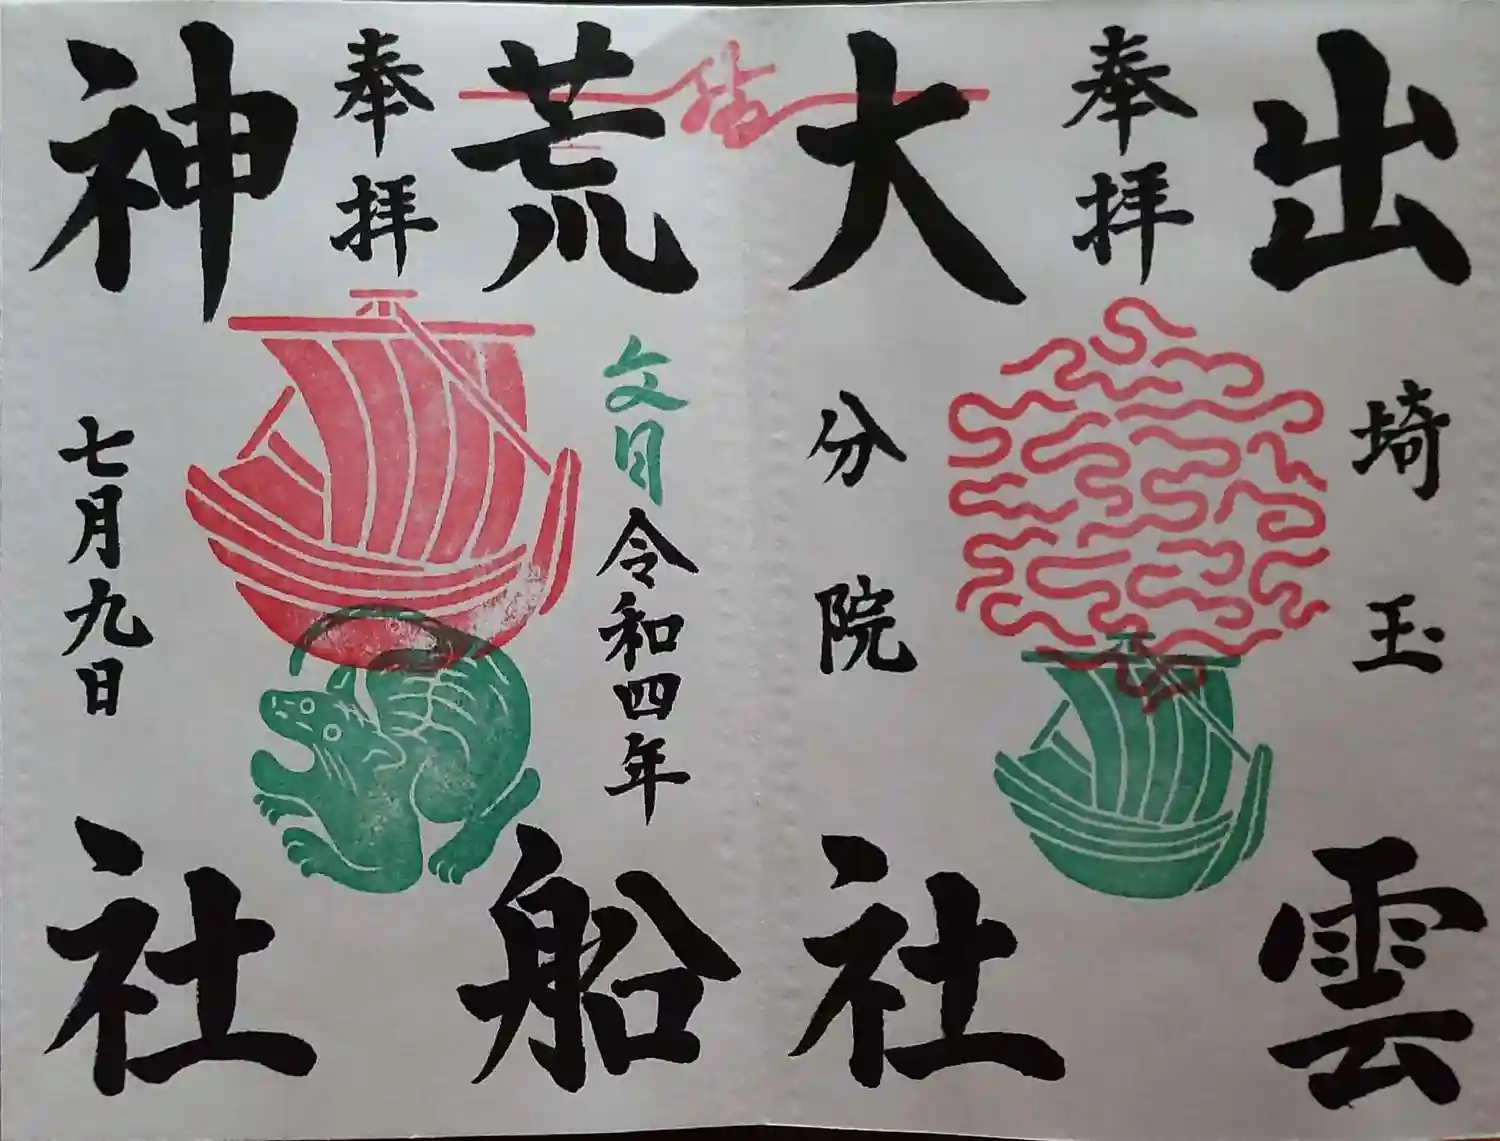 出雲
埼玉
奉拝
大社
分院
結
荒船
文月
令和四年
奉拝
神社
七月九日